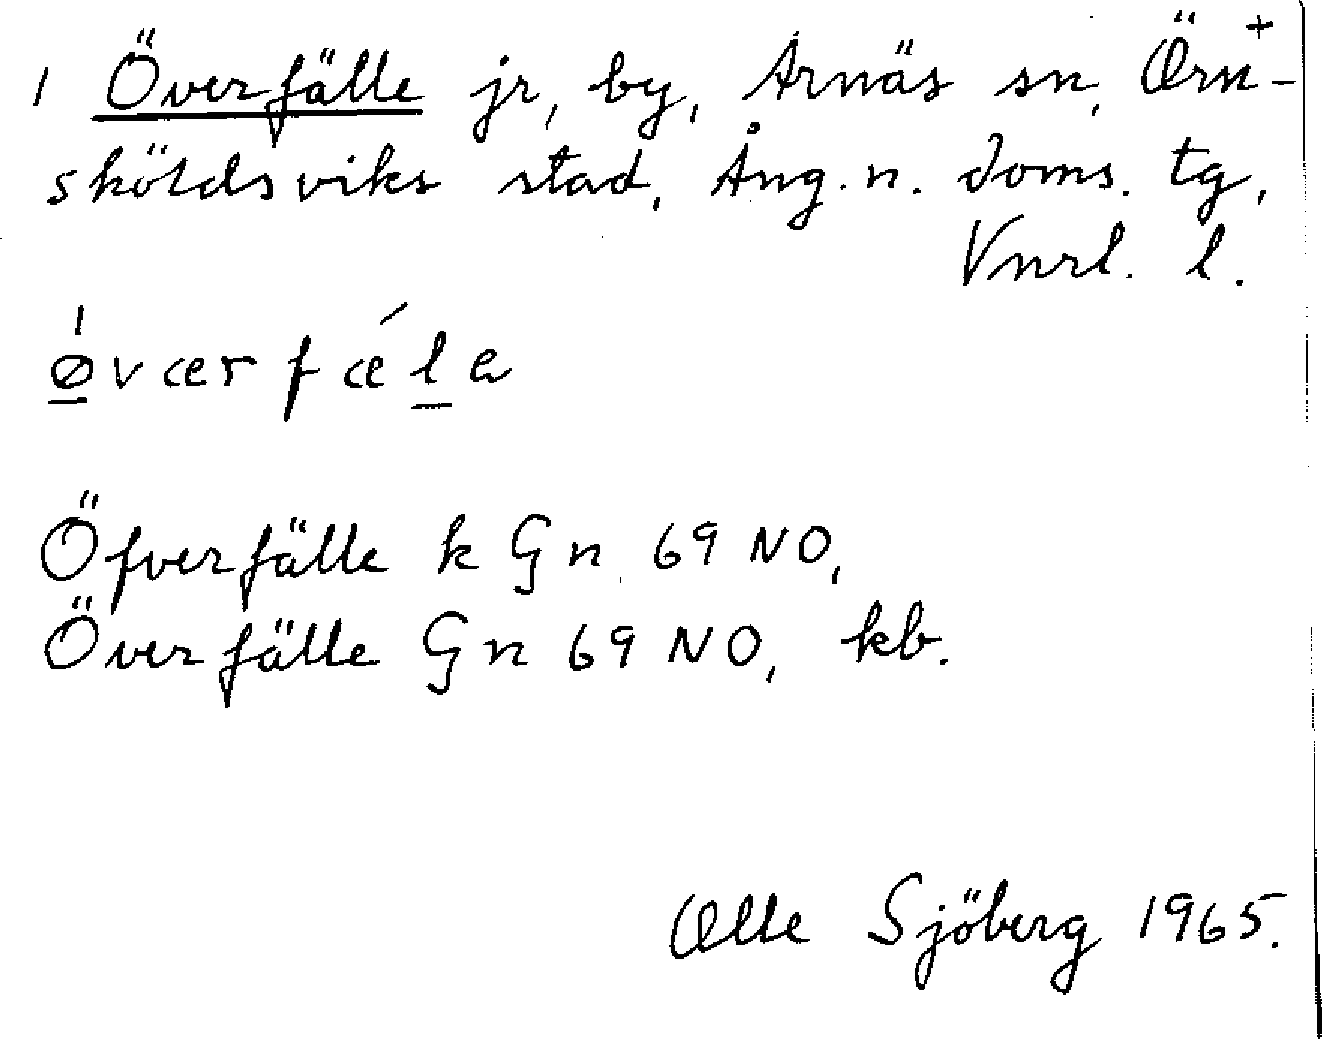 1 Överfälle jr, by, Arnäs sn, Örn-+
sköldsviks stad, Ång. n. doms. tg,
Vnrl. l.
ǿ̲værfǽl̲a
Öfverfälle k Gn 69 NO,
Överfälle Gn 69 NO, kb.
Olle Sjöberg 1965.